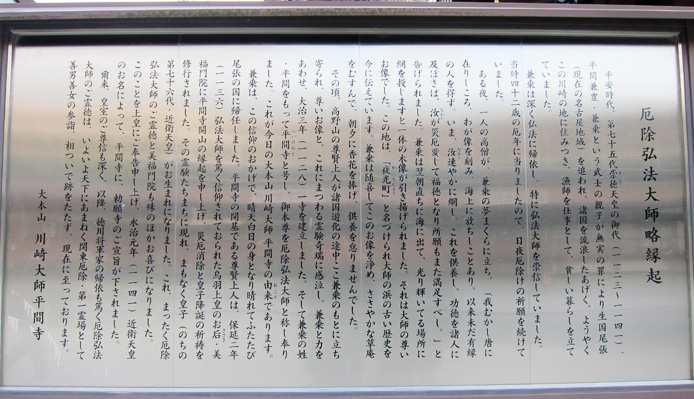 厄除弘法大師略縁起
平安時代、第七十五代崇徳天皇の御代（一一二三〜一一四一）、
平間兼豊・兼乗という武士の親子が無実の罪により生国尾張
（現在の名古屋地域）を追われ、諸国を流浪したあげく、ようやく
この川崎の地に住みつき、漁師を仕事として、貧しい暮らしを立て
ていました。
兼乗は深く仏法に帰依し、特に弘法大師を崇信していました。
当時四十二歳の厄年に当りましたので、日夜厄除けの祈願を続けて
いました。
ある夜、一人の高僧が、兼乗の夢まくらに立ち、「我むかし唐に
在りしころ、わが像を刻み、海上に放ちしことあり。以来未だ有縁
の人を得ず。いま、汝速やかに網し、これを供養し、功徳を諸人に
及ぼさば、汝が災厄変じて福徳となり所願もまた満足すべし。」と
告げられました。兼乗は翌朝直ちに海に出て、光り輝いてる場所に
網を投じますと一体の木像が引き揚げられました。それは大師の尊い
お像でした。この地は、「夜光町」と名づけられ大師の浜の古い歴史を
今に伝えています。兼乗は随喜してこのお像を浄め、ささやかな草庵
をむすんで、朝夕に香花を捧げ、供養を怠りませんでした。
その頃、高野山の尊賢上人が諸国遊化の途中ここ兼乗のもとに立ち
寄られ、尊いお像と、これにまつわる霊験奇瑞に感泣し、兼乗と力を
あわせ、大治三年（一一二八）一寺を建立しました。そして兼乗の姓
・平間をもって平間寺と号し、御本尊を厄除弘法大師と称し奉り
ました。これが今日の大本山川崎大師平間寺の由来であります。
兼乗は、この信仰のおかげで、晴天白日の身となり晴れてふたたび
尾張の国に帰任しました。平間寺の開基である尊賢上人は、保延二年
（一一三六）弘法大師を篤く信仰されておられた鳥羽上皇のお后・美
福門院に平間寺開山の縁起を申し上げ、災厄消除と皇子降誕の祈祷を
修行されました。その霊験たちまちに現れ、まもなく皇子（のちの
第七十六代、近衛天皇）がお生まれになりました。これ、まったく厄除
弘法大師のご霊徳と美福門院も殊のほかお喜びになりました。
このことを上皇にご奉告申し上げ、永治元年（一一四一）近衛天皇
のお名によって、平間寺に、勅願寺のご宣旨が下されました。
爾来、皇室のご尊信も深く、以降、徳川将軍家の帰依も篤く厄除弘法
大師のご霊徳は、いよいよ天下にあまねく、関東厄除・第一霊場として
善男善女の参詣、相ついで跡をたたず、現在に至っております。
大本山 川崎大師平間寺